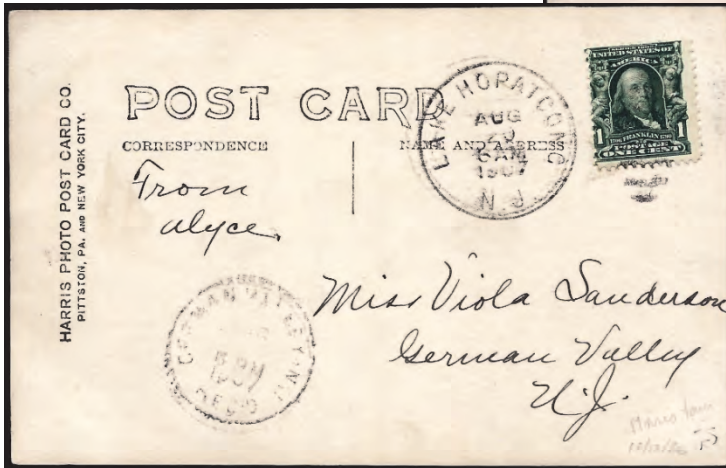 HARRIS PHOTO POST CARD CO.
PITTSTON, PA. AND NEW YORK CITY.
POST CARD
CORRESPONDENCE
NAME AND ADDRESS
LAKE HOPATCONG
AUG
20
6 AM
1907
N.J.
SERIES 1902
UNITED STATES OF
AMERICA
1 1
FRANKLIN
POSTAGE
ONE CENT
From
Alyce.
GERMAN VALLEY N.J.
5 PM
1907
REC'D
Miss Viola Sanderson
German Valley
N.J.